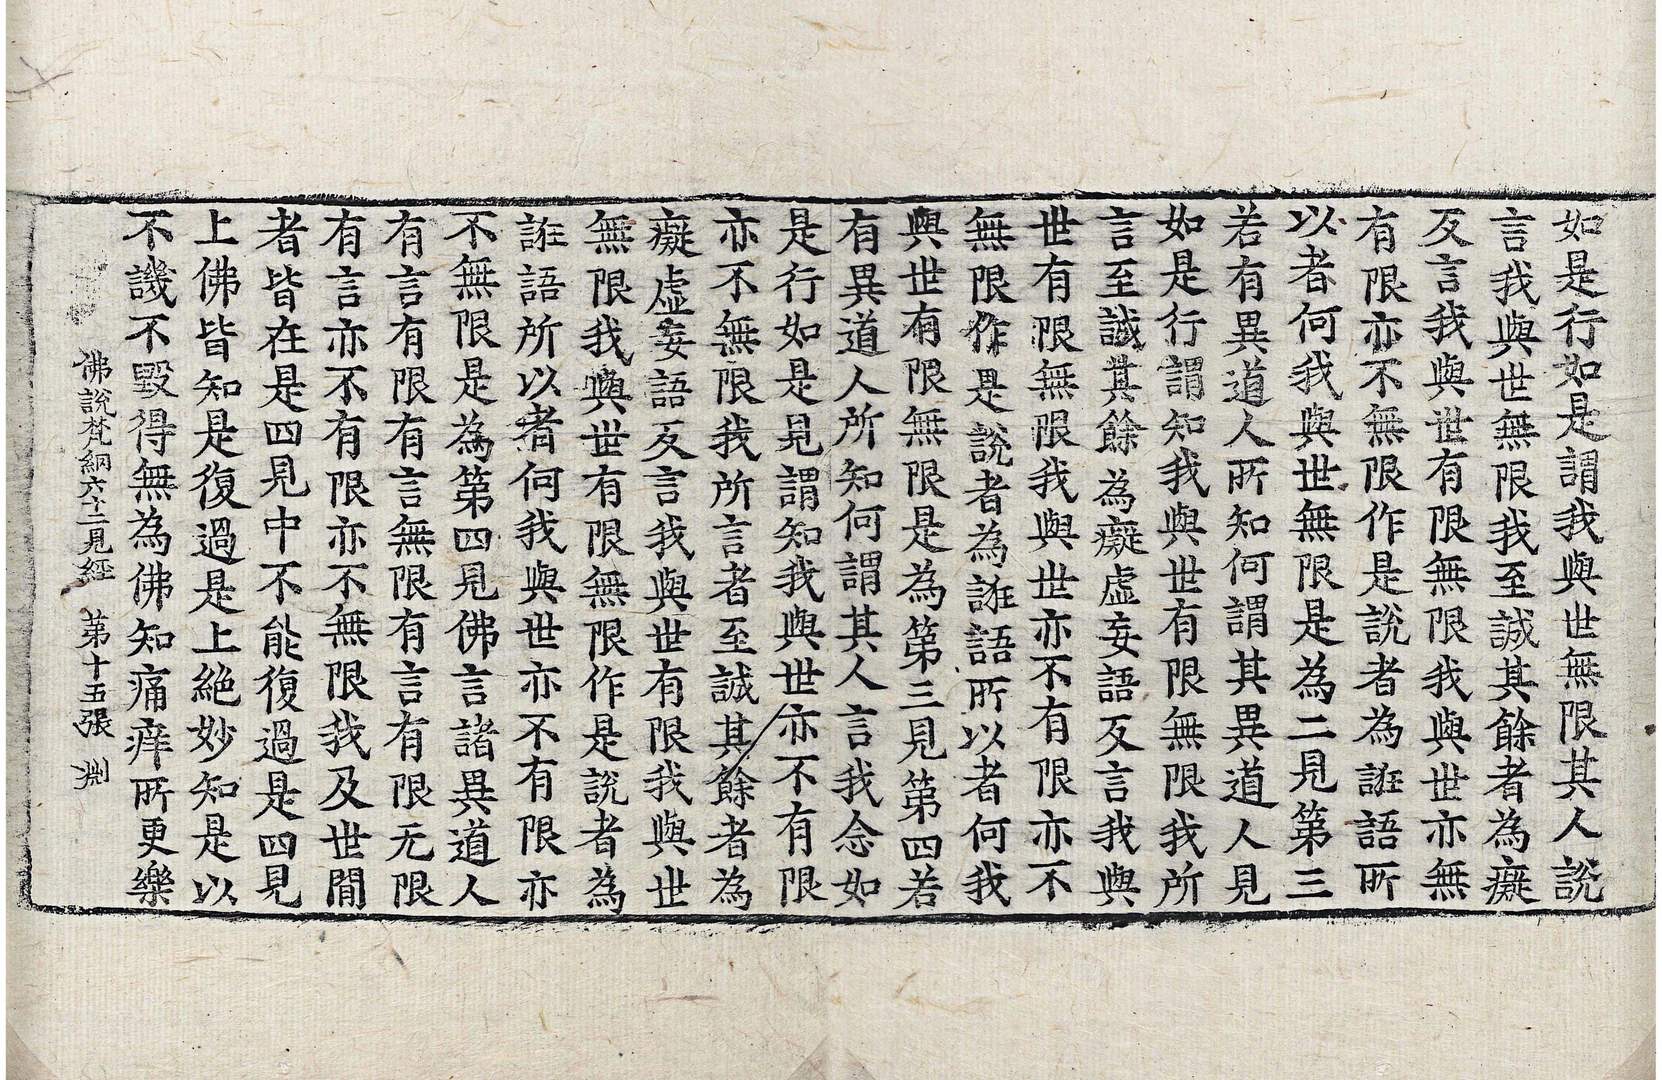 如是行如是謂我與世無限其人說
言我與世無限我至誠其餘者為癡
反言我與世有限無限我與世亦無
有限亦不無限作是說者為誑語所
以者何我與世無限是為二見第三
若有異道人所知何謂其異道人見
如是行謂知我與世有限無限我所
言至誠其餘為癡虛妄語反言我與
世有限無限我與世亦不有限亦不
無限作是說者為誑語所以者何我
與世有限無限是為第三見第四若
有異道人所知何謂其人言我念如
是行如是見謂知我與世亦不有限
亦不無限我所言者至誠其餘者為
癡虛妄語反言我與世有限我與世
無限我與世有限無限作是說者為
誑語所以者何我與世亦不有限亦
不無限是為第四見佛言諸異道人
有言有限有言無限有言有限无限
有言亦不有限亦不無限我及世間
者皆在是四見中不能復過是四見
上佛皆知是復過是上絕妙知是以
不譏不毀得無為佛知痛痒所更樂
佛說梵網六十二見經 第十五張 渕